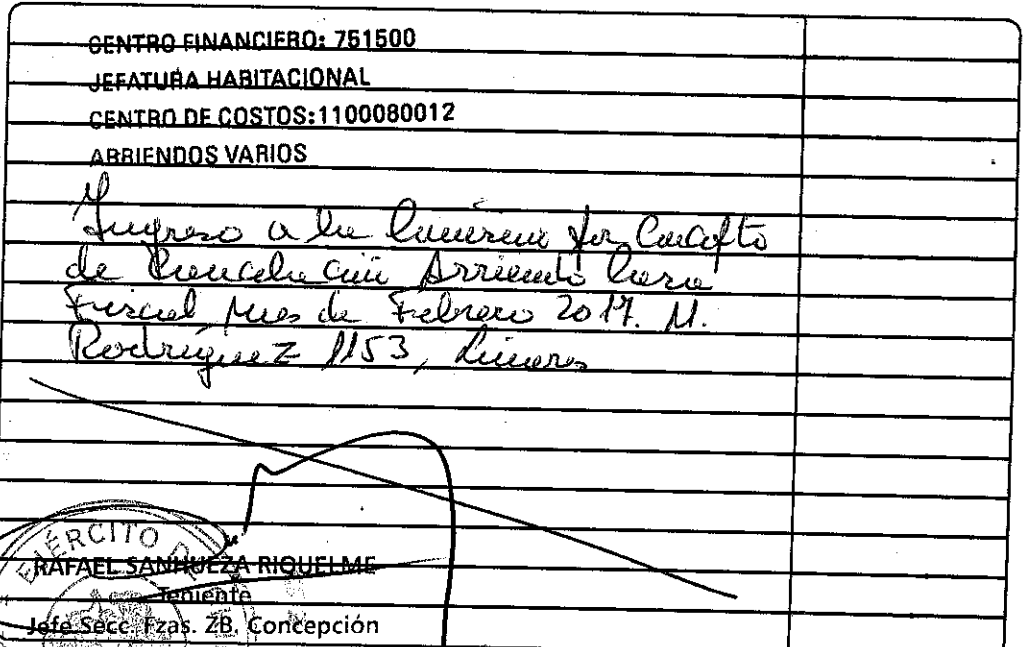 CENTRO FINANCIERO: 751500
JEFATURA HABITACIONAL
CENTRO DE COSTOS:1100080012
ARRIENDOS VARIOS
Ingreso a la por Concepto
de Arriendo Casa
Fiscal mes de Febrero 2017. M.
Rodríguez 1153, Linares
EJÉRCITO D
RAFAEL SANHUEZA RIQUELME
Teniente
Jefe Secc. Fzas. ZB. Concepción